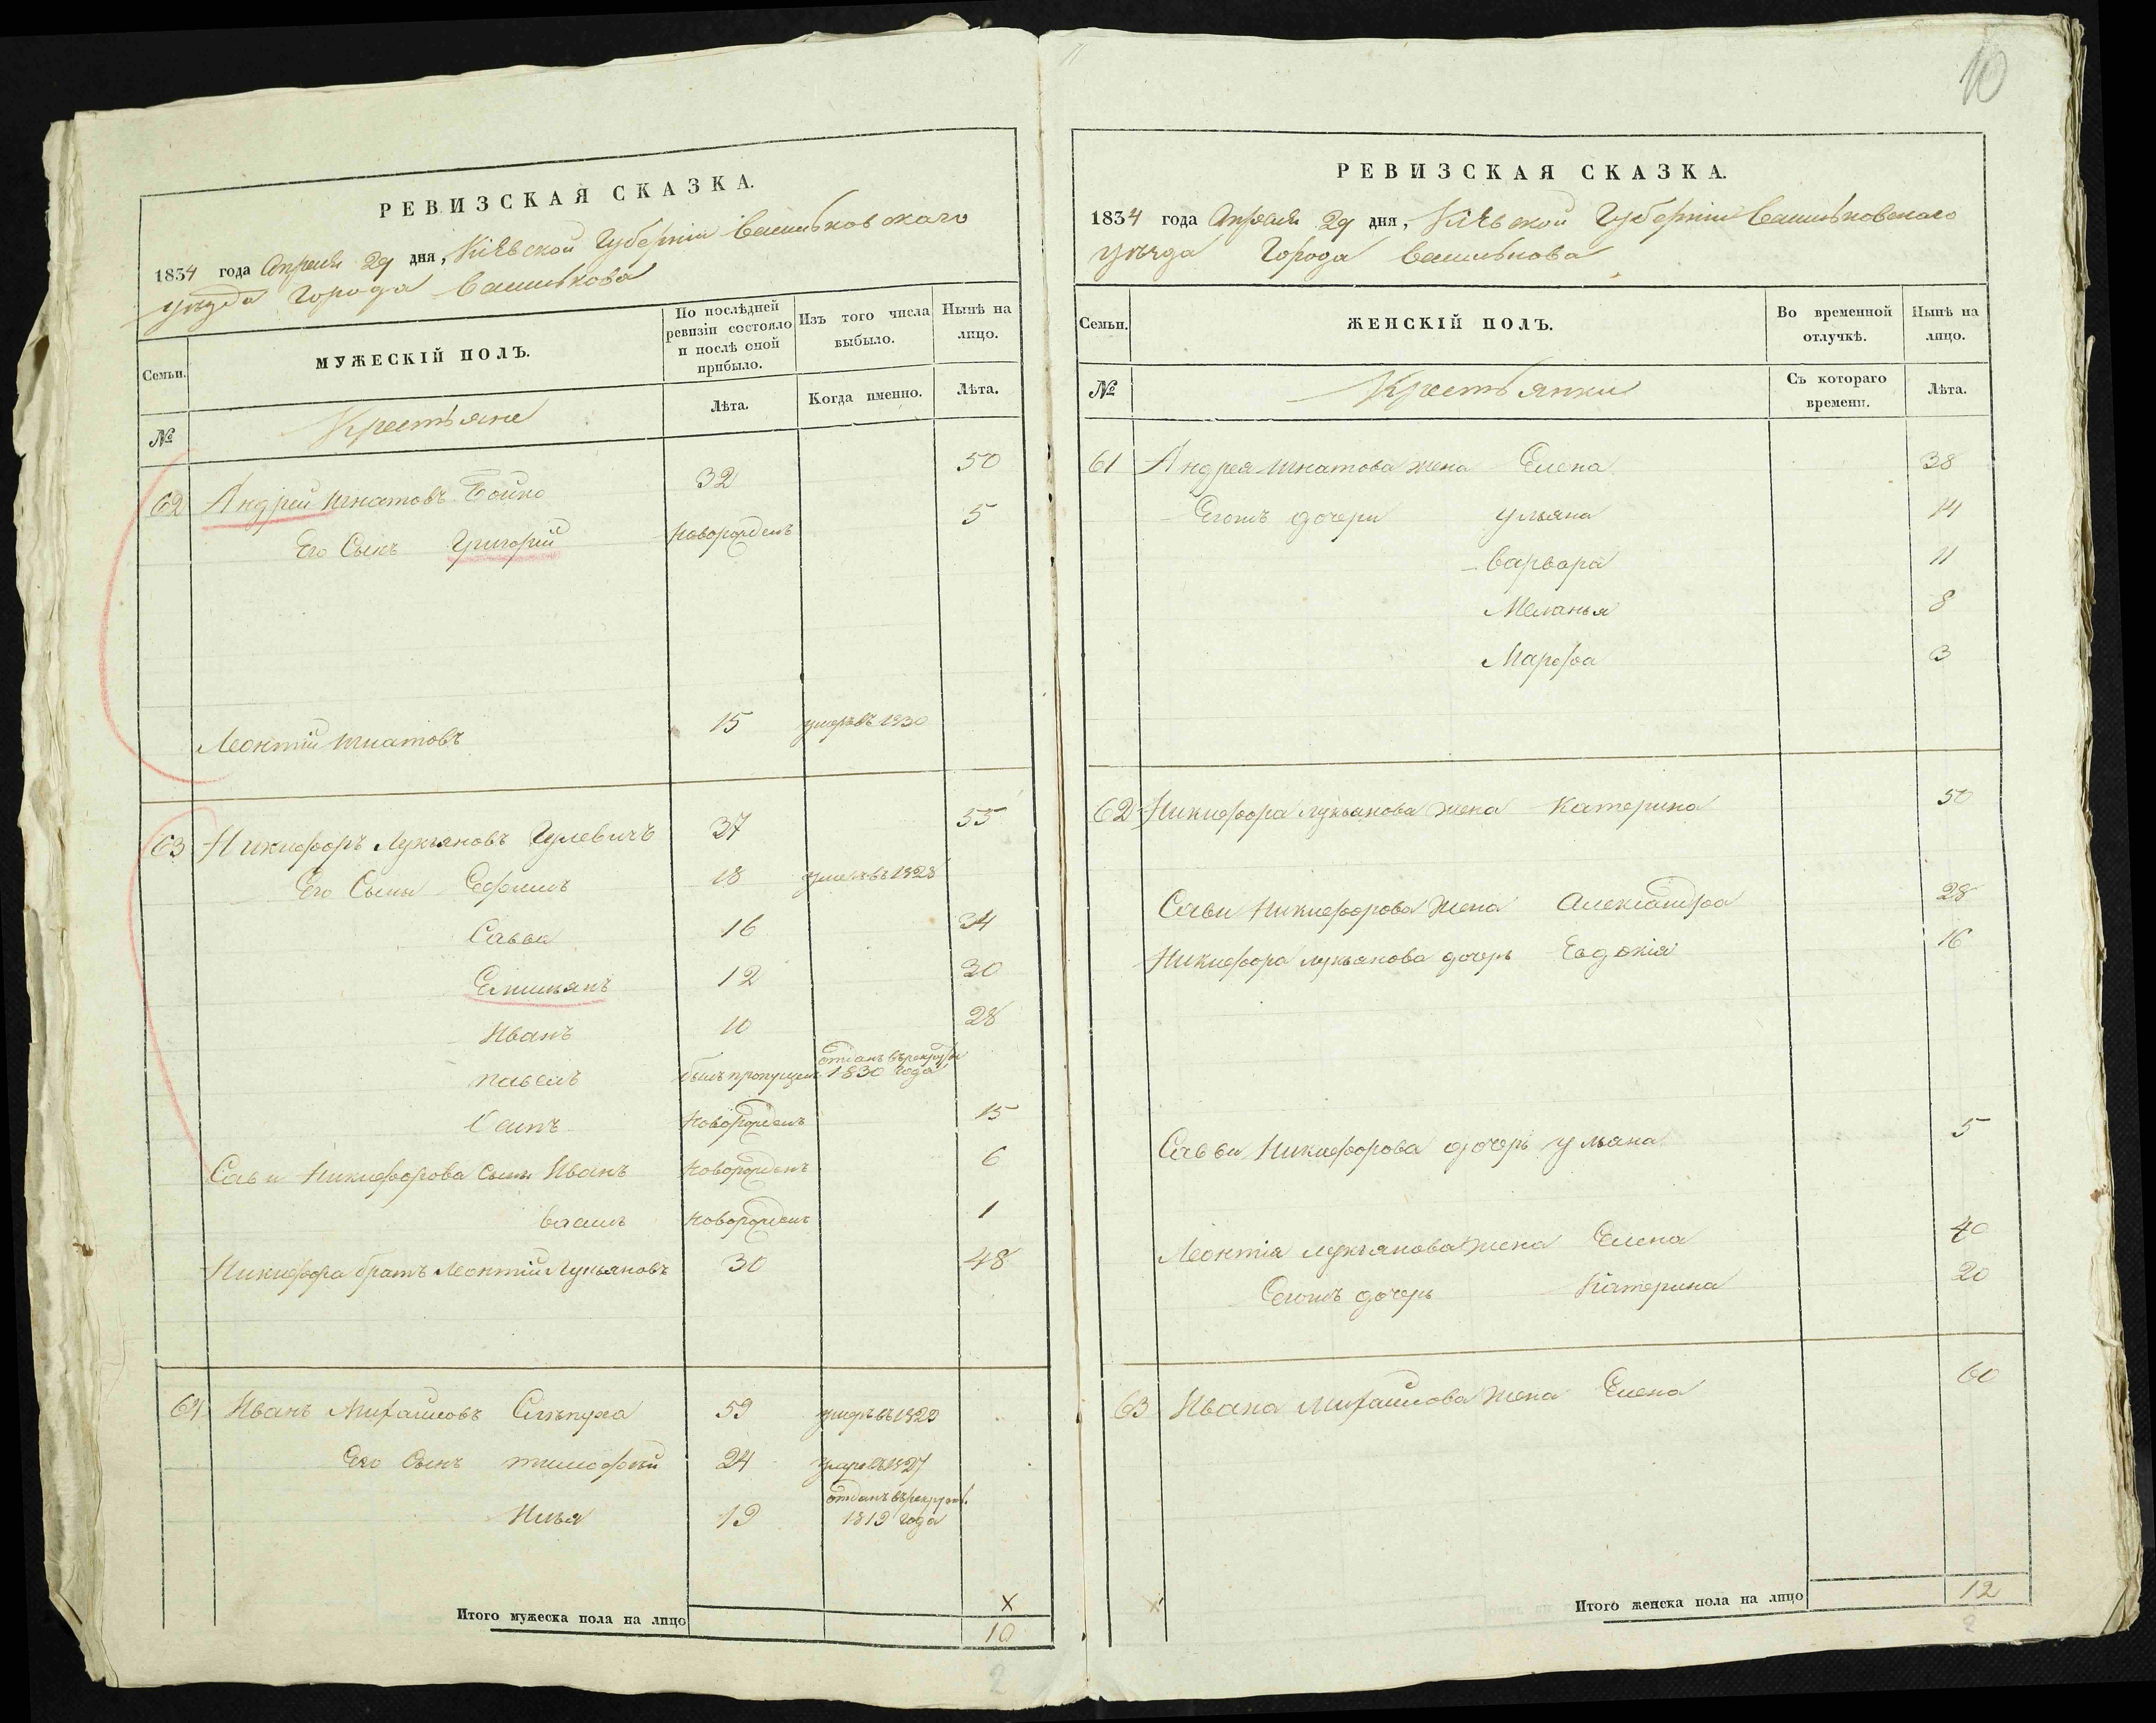 РЕВИЗСКАЯ СКАЗКА.
1834 года Апреля 29 дня, Кіевской Губерніи Васильковскаго
уѣзда Города Василькова
Семьи.
МУЖЕСКІЙ ПОЛЪ.
По послѣдней ревизіи состояло и послѣ оной прибыло.
Изъ того числа выбыло.
Нынѣ на лицо.
№
Крестьяне
Лѣта.
Когда именно.
Лѣта.
62 Андрей Игнатовъ Бойко 32 50
Его Сынъ Григорій новорожденъ 5
Леонтій Игнатовъ 15 умеръ въ 1830
63 Никифоръ Лукьяновъ Гулевичъ 37 55
Его Сыны Ефимъ 18 умеръ въ 1828
Савва 16 34
Емильянъ 12 30
Иванъ 10 28
Павелъ былъ пропущенъ отданъ въ рекруты 1830 года
новорожденъ 15
Савы Никифорова Сыны Иванъ новорожденъ 6
Василь новорожденъ 1
Никифора братъ Леонтій Лукьяновъ 30 48
64 Иванъ Михайловъ Слѣпуха 59 умеръ въ 1829
Его Сынъ Тимофѣй 24 умеръ въ 1827
Илья 19 отданъ въ рекрут. 1819 года
Х
Итого мужеска пола на лицо 10
2
10
РЕВИЗСКАЯ СКАЗКА.
1834 года Апреля 29 дня, Кіевской Губерніи Васильковскаго
уѣзда Города Василькова
Семьи.
ЖЕНСКІЙ ПОЛЪ.
Во временной отлучкѣ.
Нынѣ на лицо.
№
Крестьянки
Съ котораго времени.
Лѣта.
61 Андрея Игнатова жена Елена 38
Егожъ дочери Ульяна 14
Варвара 11
Меланья 8
Марфа 3
62 Никифора Лукьянова жена Катерина 50
Савы Никифорова жена Александра 28
Никифора Лукьянова дочерь Евдокія 16
Саввы Никифорова дочерь Ульяна 5
Леонтія Лукьянова жена Елена 40
Егожъ дочерь Катерина 20
63 Ивана Михайлова жена Елена 60
Х
Итого женска пола на лицо 12
2